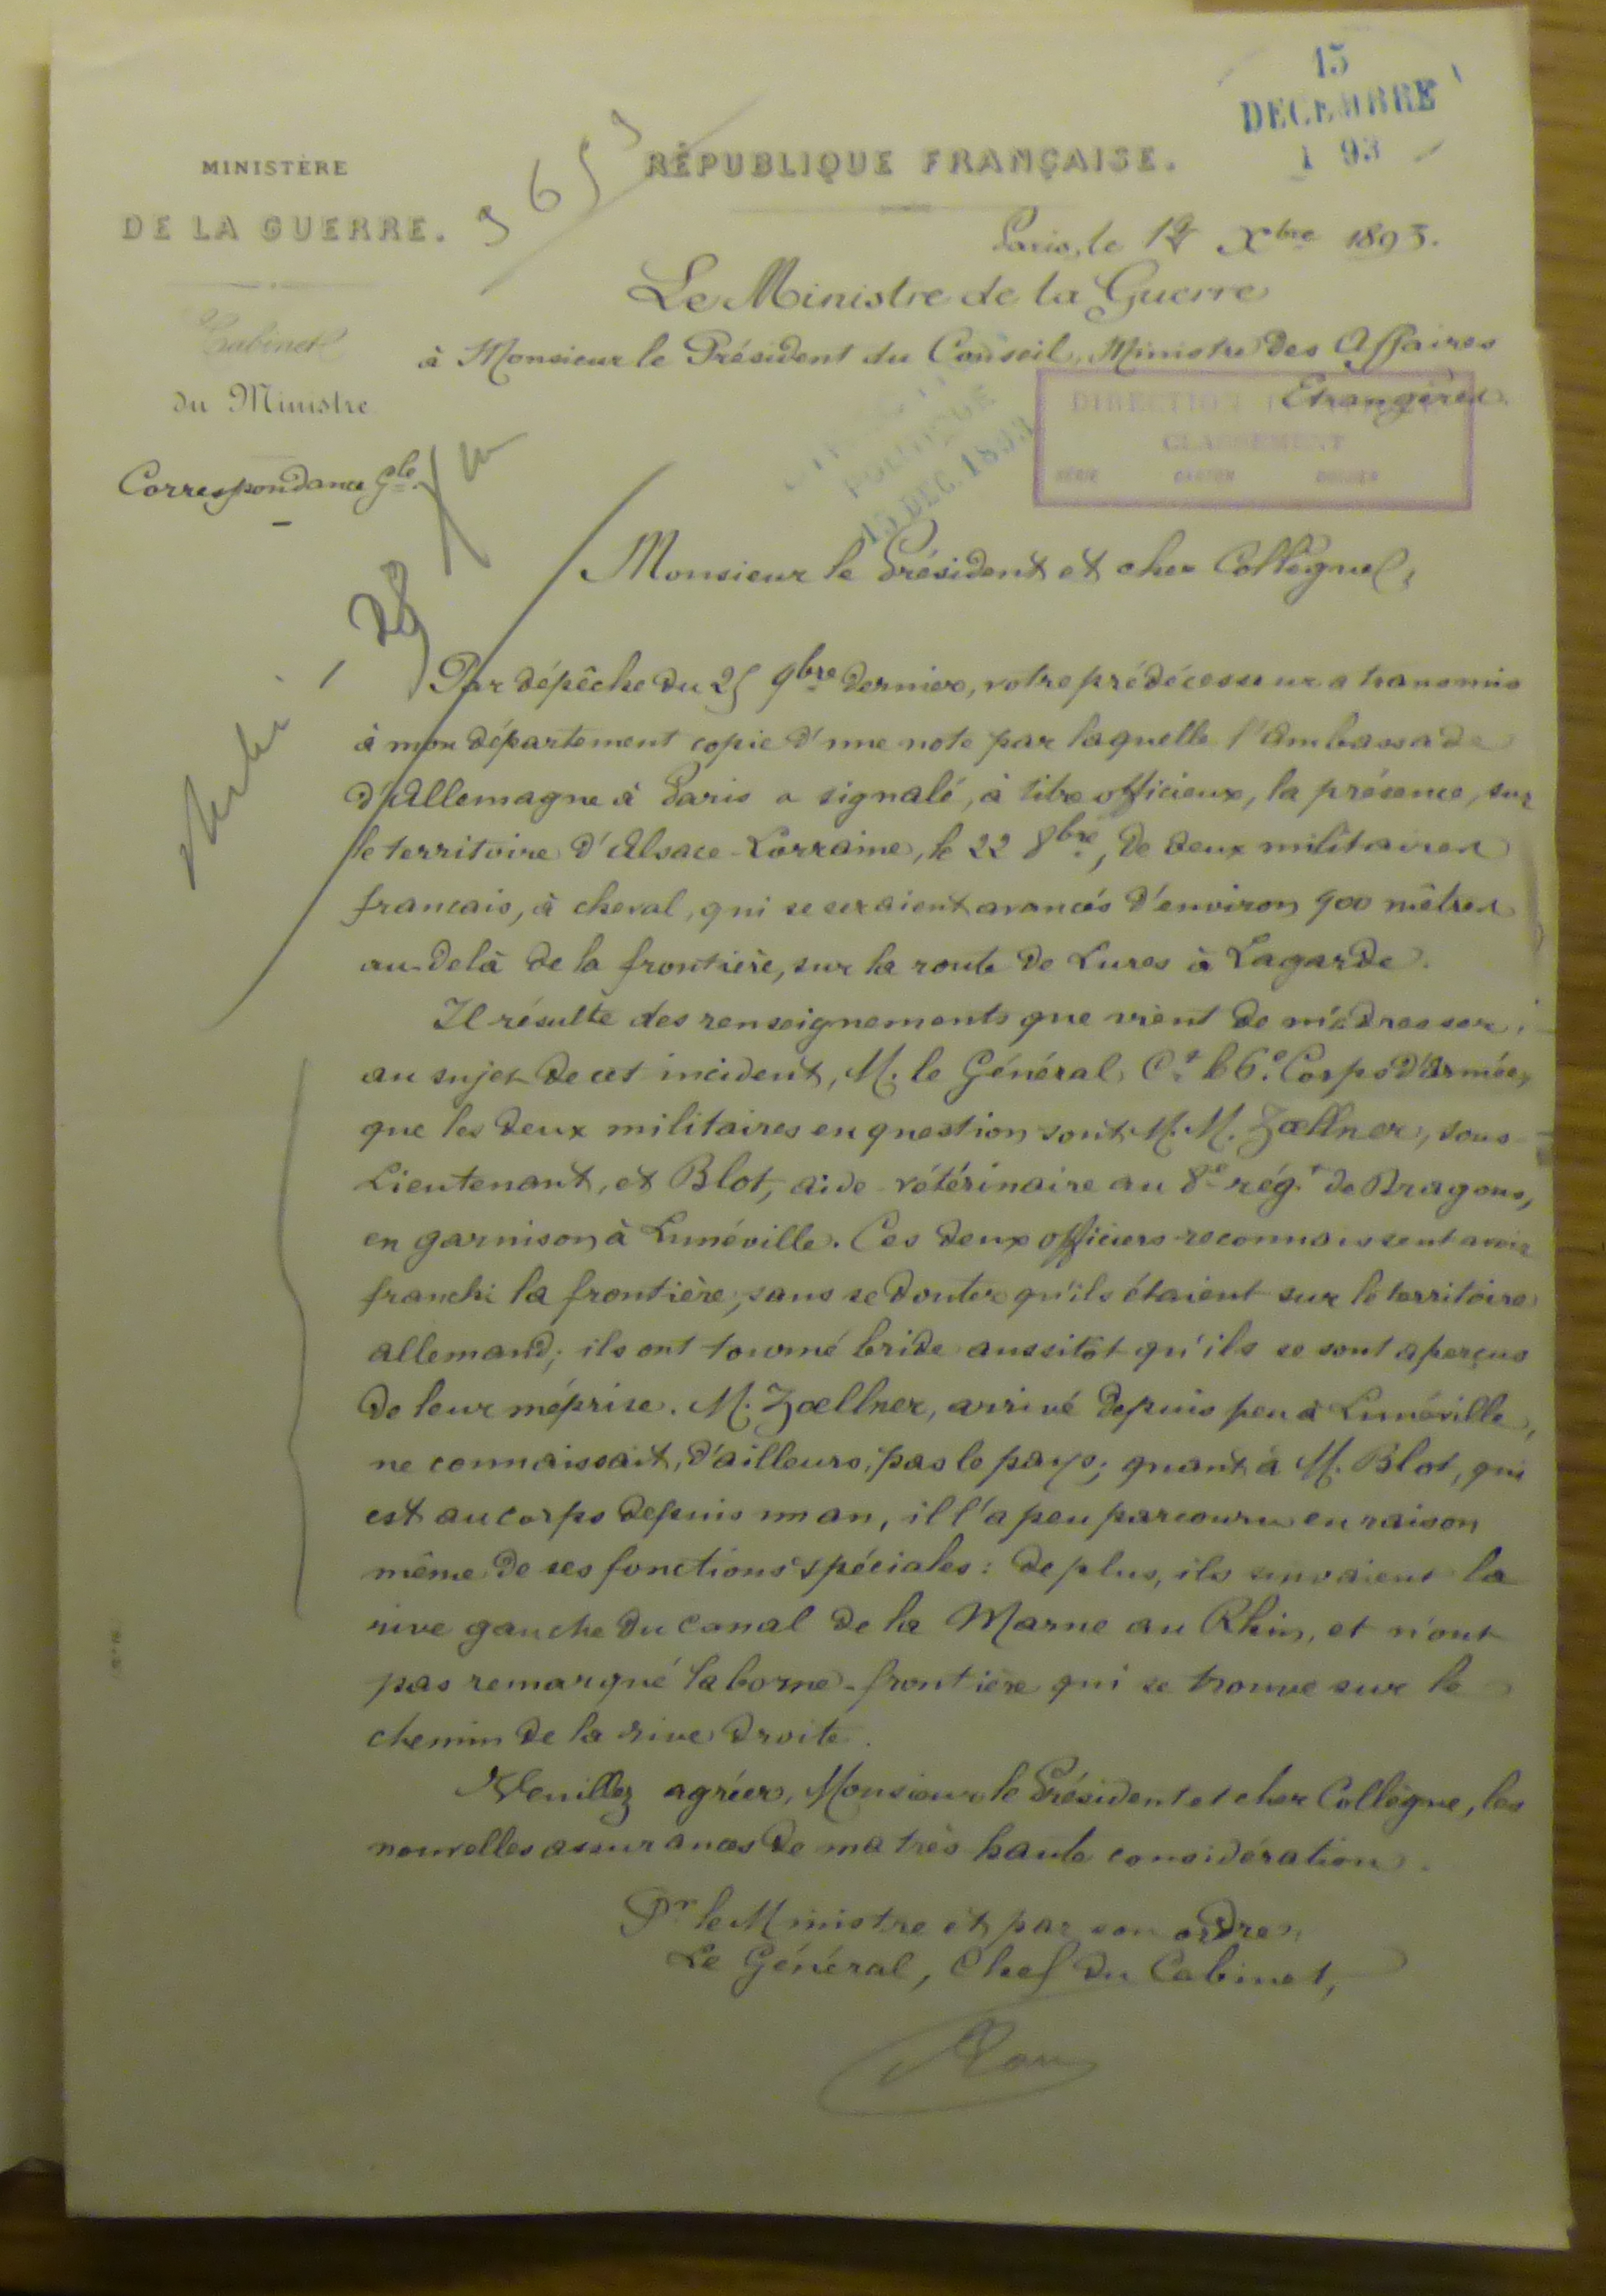 15
DECEMBRE
1 93
MINISTÈRE
DE LA GUERRE.
RÉPUBLIQUE FRANÇAISE.
Paris, le Xbre 1893.
Le Ministre de la Guerre
Cabinet
du Ministre
à Monsieur le Président du Conseil, Ministre des Affaires
Etrangères.
DIRECTION
CLASSEMENT
SÉRIE CARTON DOSSIER
Correspondance Gle
POLITIQUE
15 DEC. 1893
Monsieur le Président et cher Collègue,
Par dépêche du 25 9bre dernier, votre prédécesseur a transmis
à mon département copie d'une note par laquelle l'Ambassade
d'Allemagne à Paris a signalé, à titre officieux, la présence, sur
le territoire d'Alsace-Lorraine, le 22 8bre, de deux militaires
francais, à cheval, qui se seraient avancés d'environ 900 mètres
au-delà de la frontière, sur la route de Lures à Lagarde.
Il résulte des renseignements que vient de m'adresser,
au sujet de cet incident, M. le Général Ct le 6e Corps d'Armée,
que les deux militaires en question sont M.M. Zoellner, sous-
Lieutenant, et Blot, aide-vétérinaire au 8e régt de Dragons,
en garnison à Lunéville. Ces deux officiers reconnaissent avoir
franchi la frontière, sans se douter qu'ils étaient sur le territoire
allemand; ils ont tourné bride aussitôt qu'ils se sont aperçus
de leur méprise. M. Zoellner, arrivé depuis peu à Lunéville,
ne connaissait, d'ailleurs, pas le pays; quant à M. Blot, qui
est au corps depuis un an, il l'a peu parcouru en raison
même de ses fonctions spéciales: de plus, ils suivaient la
rive gauche du canal de la Marne au Rhin, et n'ont
pas remarqué la borne-frontière qui se trouve sur le
chemin de la rive droite.
Veuillez agréer, Monsieur le Président et cher Collègue, les
nouvelles assurances de ma très haute considération.
Pr le Ministre et par son ordre,
Le Général, Chef du Cabinet,